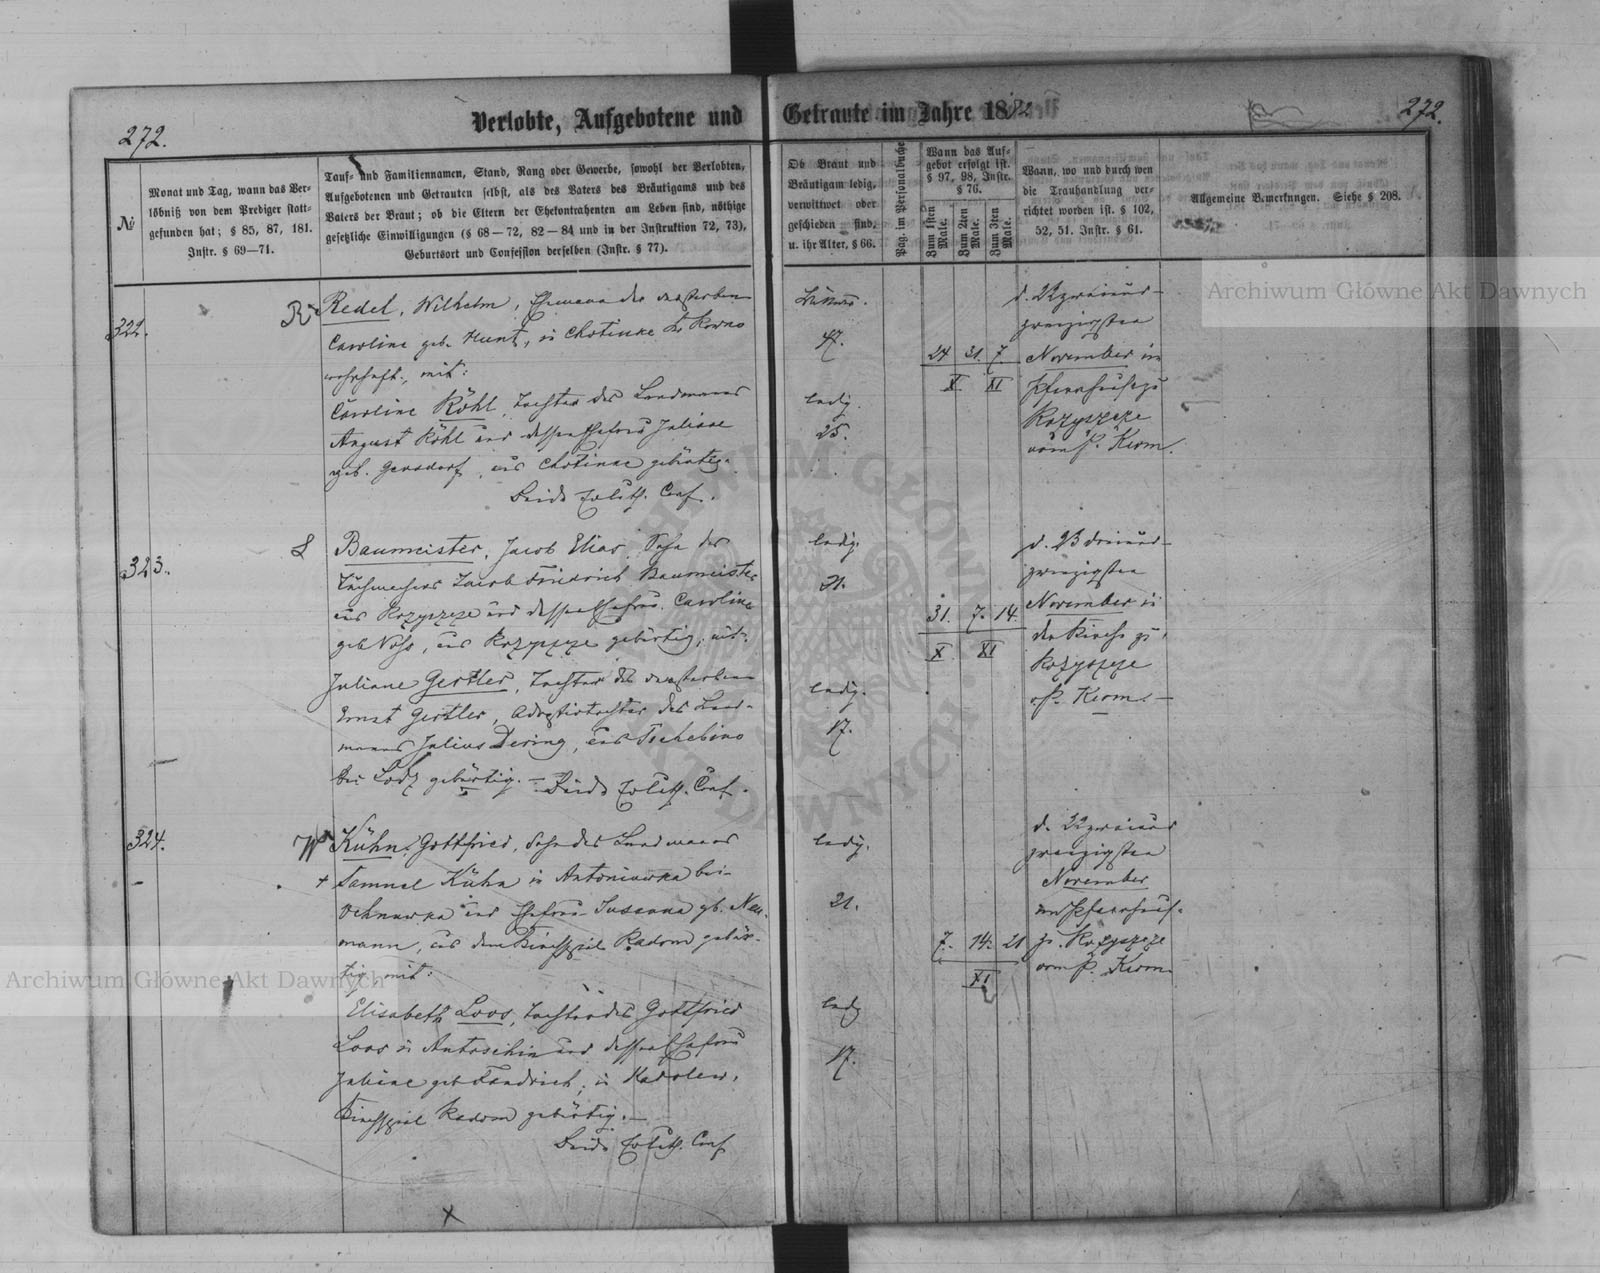 Verlobte, Aufgebotene und Getraute im Jahre 1882
272.
272.
№
Monat und Tag, wann das Ver-
löbniß von dem Prediger statt-
gefunden hat; § 85, 87, 181.
Instr. § 69—71.
Tauf- und Familiennamen, Stand, Rang oder Gewerbe, sowohl der Verlobten,
Aufgebotenen und Getrauten selbst, als des Vaters des Bräutigams und des
Vaters der Braut; ob die Eltern der Ehekontrahenten am Leben sind, nöthige
gesetzliche Einwilligungen (§ 68—72, 82—84 und in der Instruktion 72, 73),
Geburtsort und Confession derselben (Instr. § 77).
Ob Braut und
Bräutigam ledig,
verwittwet oder
geschieden sind,
u. ihr Alter, § 66.
Pag. im Personalbuche
Wann das Auf-
gebot erfolgt ist.
§ 97, 98, Instr.
§ 76.
Zum 1sten Male.
Zum 2ten Male.
Zum 3ten Male.
Wann, wo und durch wen
die Trauhandlung ver-
richtet worden ist. § 102,
52, 51. Instr. § 61.
Allgemeine Bemerkungen. Siehe § 208.
322.
Redel, Wilhelm, Ehemann der verstorben
Caroline geb. Hunt, in Chotinke
wohnhaft, mit:
Caroline Röhl, Tochter des Landmanns
August Röhl und dessen Ehefrau Juliane
geb. Gensdorf, aus Chotinne gebürtig.
Beide Ev. luth. Conf.
47.
ledig.
25.
24 31. 7.
X XI
d. 22 zweiund-
zwanzigsten
November im
Pfarrhause zu
Rozyszcze
vom P. Kerm.
323.
L
Baumeister, Jacob Elias, Sohn des
Tuchmachers Jacob Friedrich Baumeister
aus Rozyszcze und dessen Ehefrau Caroline
geb. Noss, aus Rozyszcze gebürtig, mit:
Juliane Gertler, Tochter des verstorbenen
Ernst Gertler, Adoptivtochter des Land-
manns Julius Dering, aus Tschebino
bei Lodz gebürtig. — Beide Ev. luth. Conf.
ledig.
21.
ledig.
17.
31. 7. 14.
X XI
d. 23 dreiund-
zwanzigsten
November in
der Kirche zu
Rozyszcze
P. Kerm. —
324.
W
Kühn, Gottfried, Sohn des Landmanns
+ Samuel Kühn in Antoniowka bei
Ochnuwka und Ehefrau Susanna gb. Neu-
mann, aus dem Kirchspiel Radom gebür-
tig, mit:
Elisabeth Loos, Tochter des Gottfried
Loos in Antoschin und dessen Ehefrau
Juliane geb. Fandrich, in Karolew,
Kirchspiel Radom gebürtig. —
Beide Ev. luth. Conf.
ledig.
21.
ledig
17.
7. 14. 21
XI
d. 22 zweiund
zwanzigsten
November
im Pfarrhause
zu Rozyszcze
vom P. Kerm.
X
Archiwum Główne Akt Dawnych
Archiwum Główne Akt Dawnych